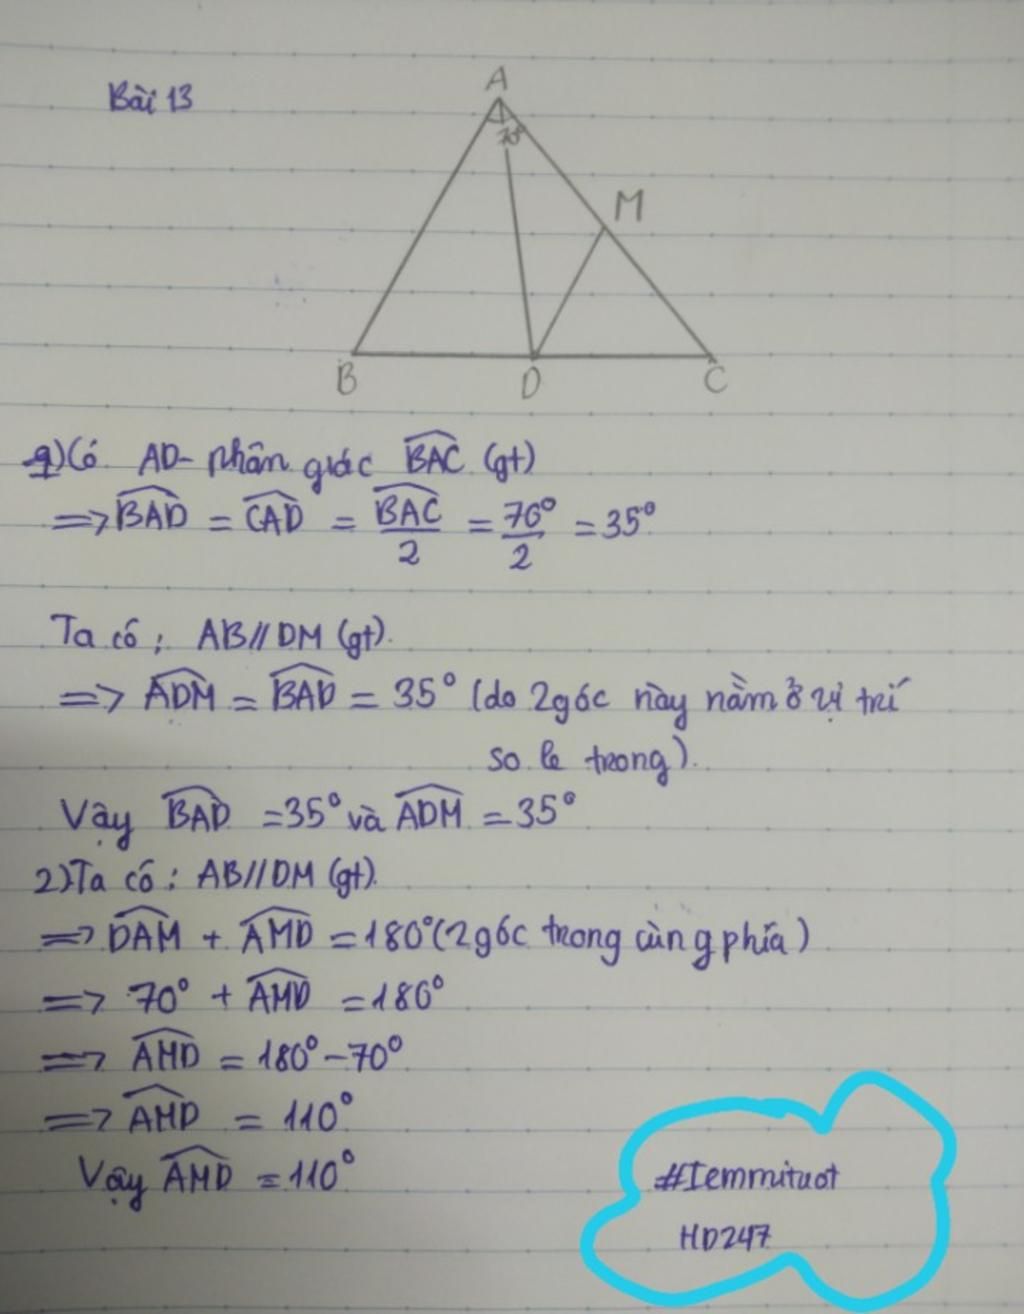 Bài 13
A
70°
M
B D C
1) Có AD- phân giác BAC (gt)
=> BAD = CAD = BAC/2 = 70°/2 = 35°
Ta có: AB//DM (gt).
=> ADM = BAD = 35° (do 2 góc này nằm ở vị trí
so le trong).
Vậy BAD = 35° và ADM = 35°
2) Ta có: AB//DM (gt).
=> DAM + AMD = 180° (2 góc trong cùng phía)
=> 70° + AMD = 180°
=> AMD = 180° - 70°
=> AMD = 110°
Vậy AMD = 110°
#Iemmituot
HD247